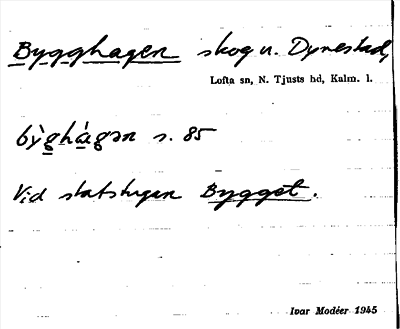 Bygghagen skog u. Dynestad,
Lofta sn, N. Tjusts hd, Kalm. l.
by̆ghágən s. 85
Vid statstugan Bygget.
Ivar Modéer 1945